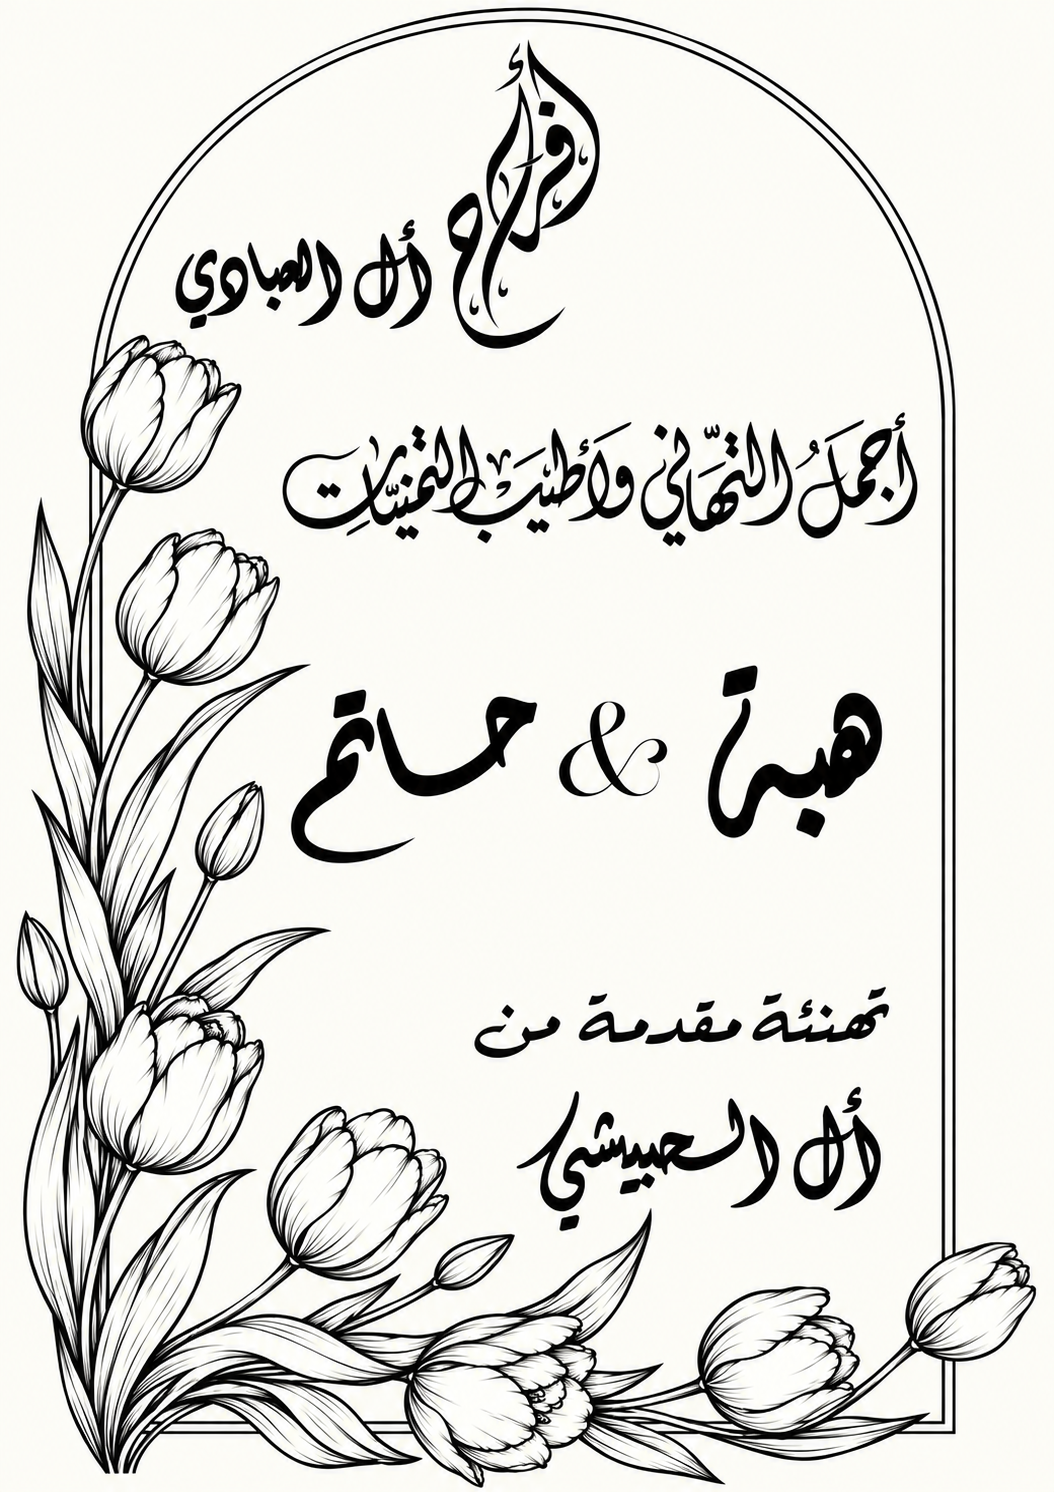 أفراح أل العبادي
أجملُ التّهَاني وَأطيَبْ التمنيّاتِ
هبة & حاتم
تهنئة مقدمة من
أل الحبيشي